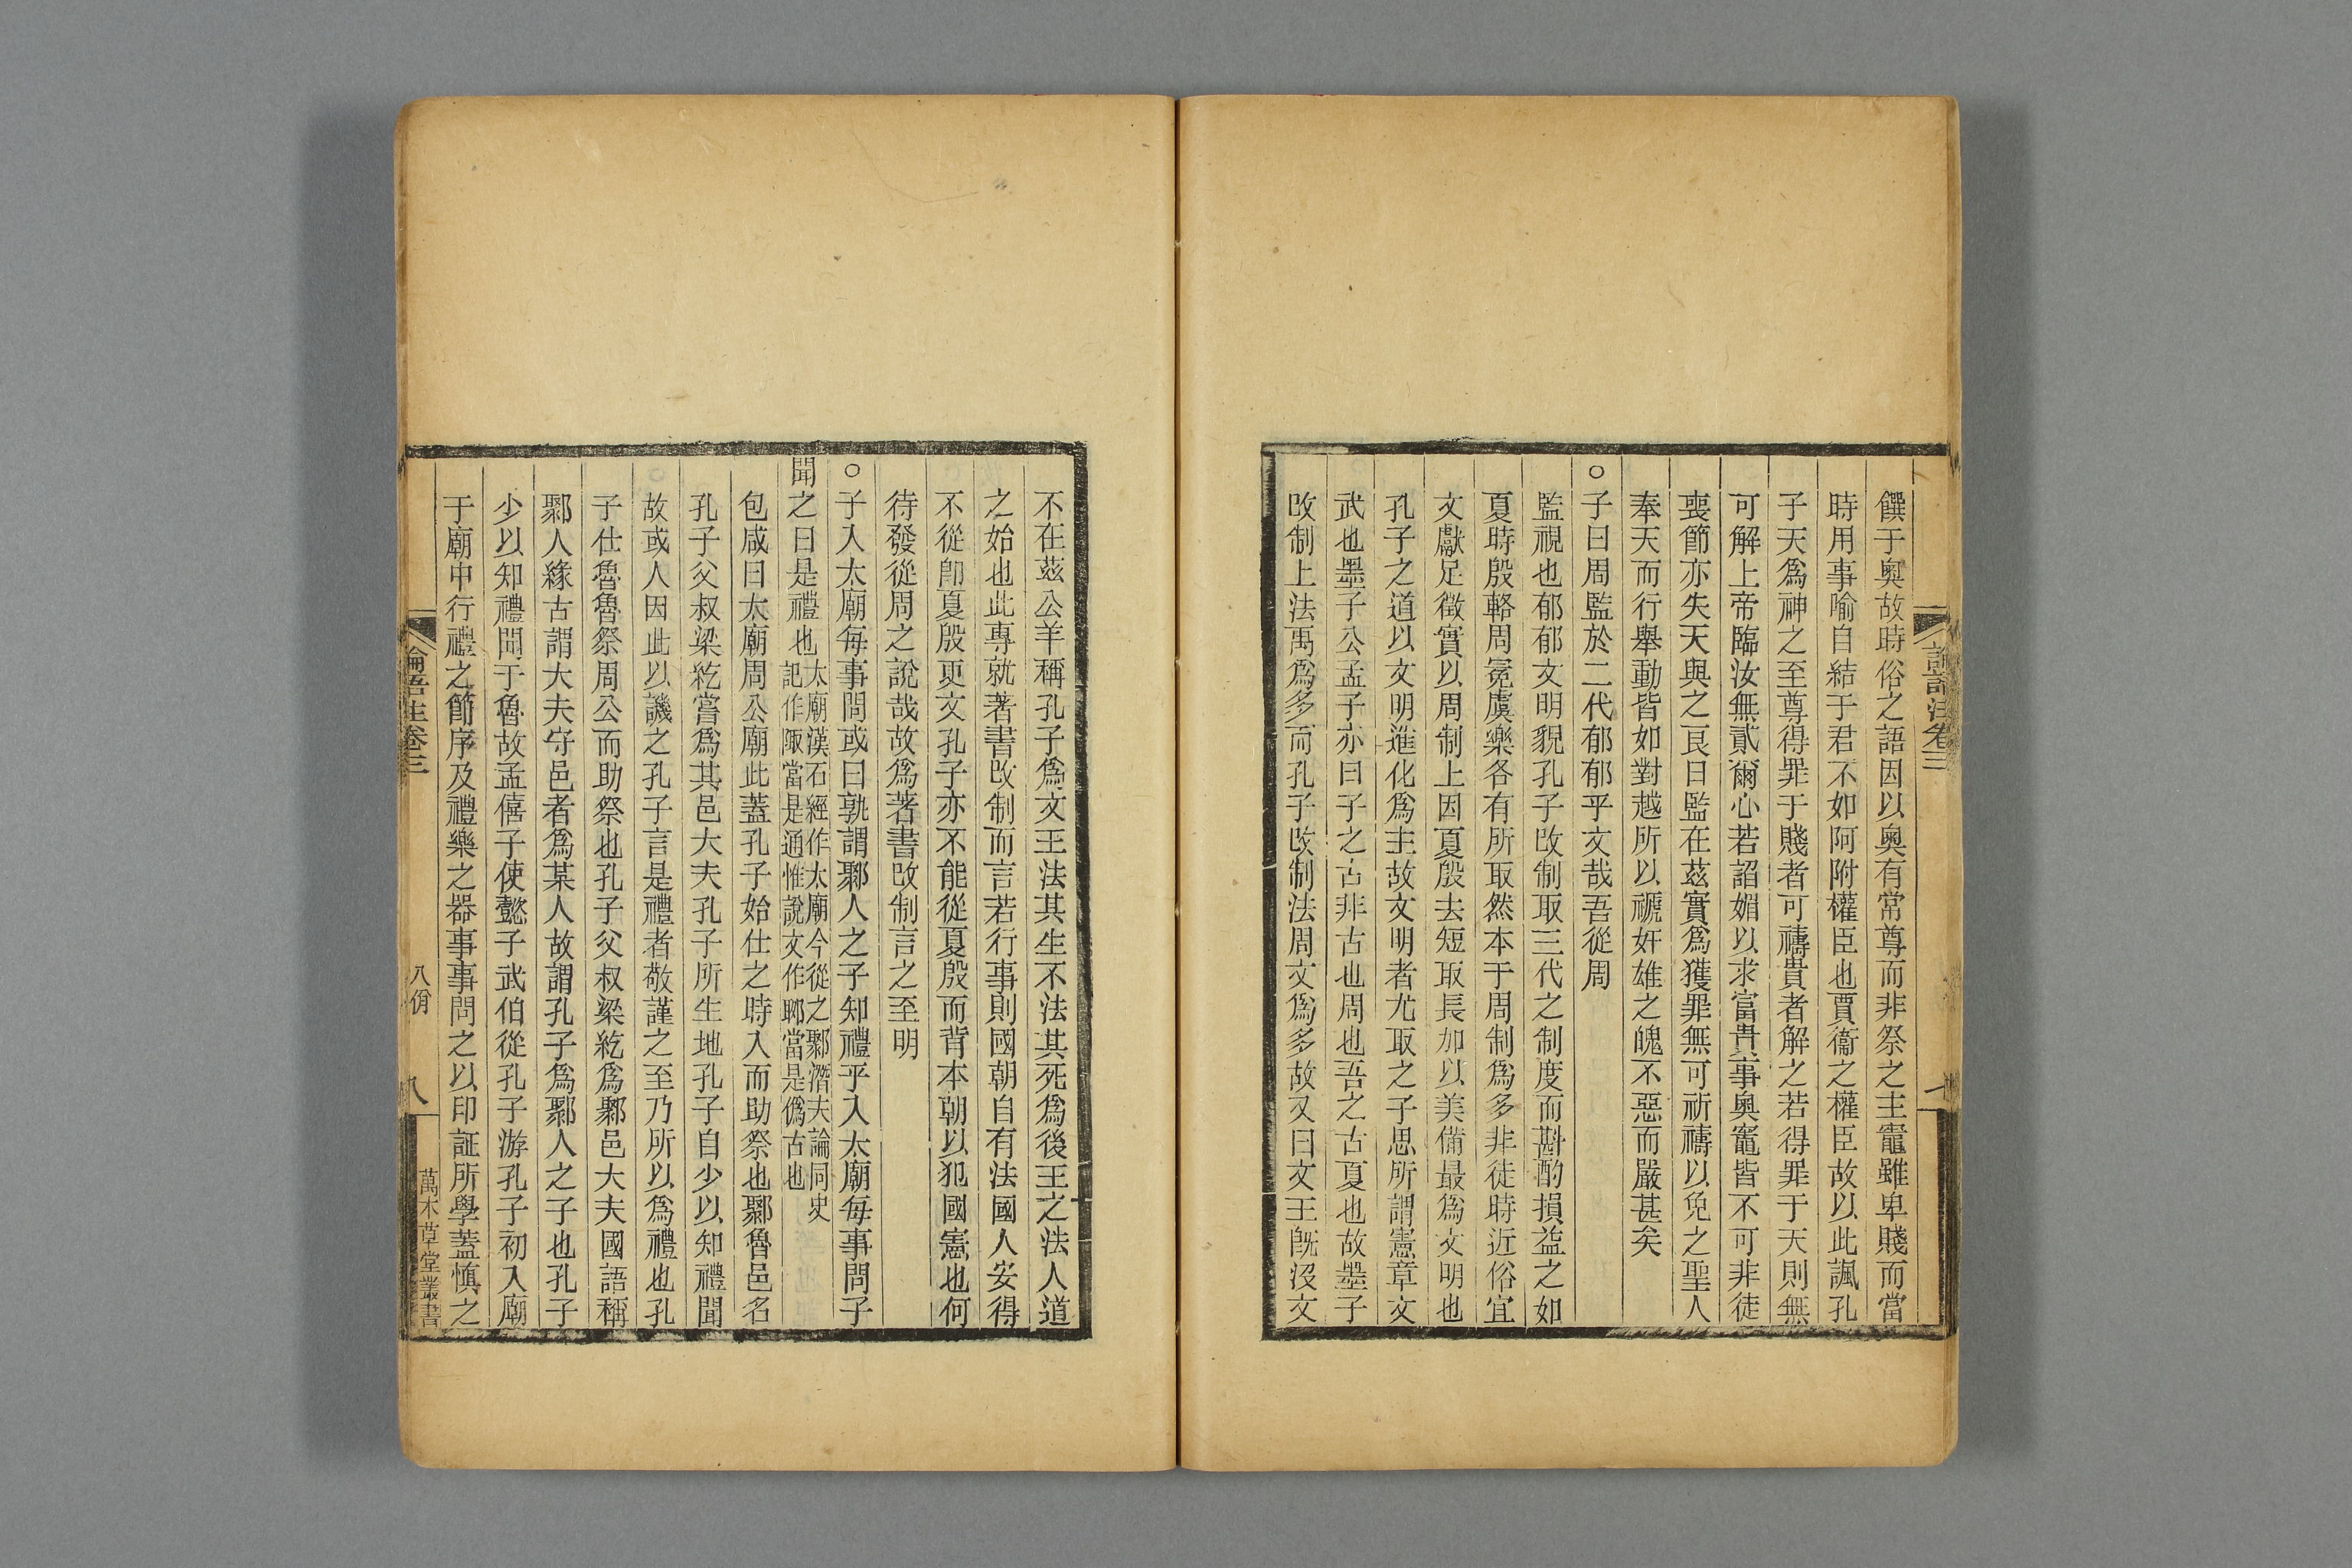 論語注卷三
饌于奧故時俗之語因以奧有常尊而非祭之主竈雖卑賤而當
時用事喻自結于君不如阿附權臣也賈衞之權臣故以此諷孔
子天爲神之至尊得罪于賤者可禱貴者解之若得罪于天則無
可解上帝臨汝無貳爾心若諂媚以求富貴事奧竈皆不可非徒
喪節亦失天與之良日監在茲實爲獲罪無可祈禱以免之聖人
奉天而行舉動皆如對越所以禠奸雄之魄不惡而嚴甚矣
○子曰周監於二代郁郁乎文哉吾從周
監視也郁郁文明貌孔子改制取三代之制度而斟酌損益之如
夏時殷輅周冕虞樂各有所取然本于周制爲多非徒時近俗宜
文獻足徵實以周制上因夏殷去短取長加以美備最爲文明也
孔子之道以文明進化爲主故文明者尤取之子思所謂憲章文
武也墨子公孟子亦曰子之古非古也周也吾之古夏也故墨子
改制上法禹爲多而孔子改制法周文爲多故又曰文王既沒文
不在茲公羊稱孔子爲文王法其生不法其死爲後王之法人道
之始也此專就著書改制而言若行事則國朝自有法國人安得
不從卽夏殷更文孔子亦不能從夏殷而背本朝以犯國憲也何
待發從周之說哉故爲著書改制言之至明
○子入太廟每事問或曰孰謂鄹人之子知禮乎入太廟每事問子
聞之曰是禮也太廟漢石經作太廟今從之鄹潛夫論同史
記作陬當是通惟說文作郰當是僞古也
包咸曰太廟周公廟此蓋孔子始仕之時入而助祭也鄹魯邑名
孔子父叔梁紇嘗爲其邑大夫孔子所生地孔子自少以知禮聞
故或人因此以譏之孔子言是禮者敬謹之至乃所以爲禮也孔
子仕魯魯祭周公而助祭也孔子父叔梁紇爲鄹邑大夫國語稱
鄹人緣古謂大夫守邑者爲某人故謂孔子爲鄹人之子也孔子
少以知禮聞于魯故孟僖子使懿子武伯從孔子游孔子初入廟
于廟中行禮之節序及禮樂之器事事問之以印証所學蓋愼之
論語注卷三
八佾
八
萬木草堂叢書